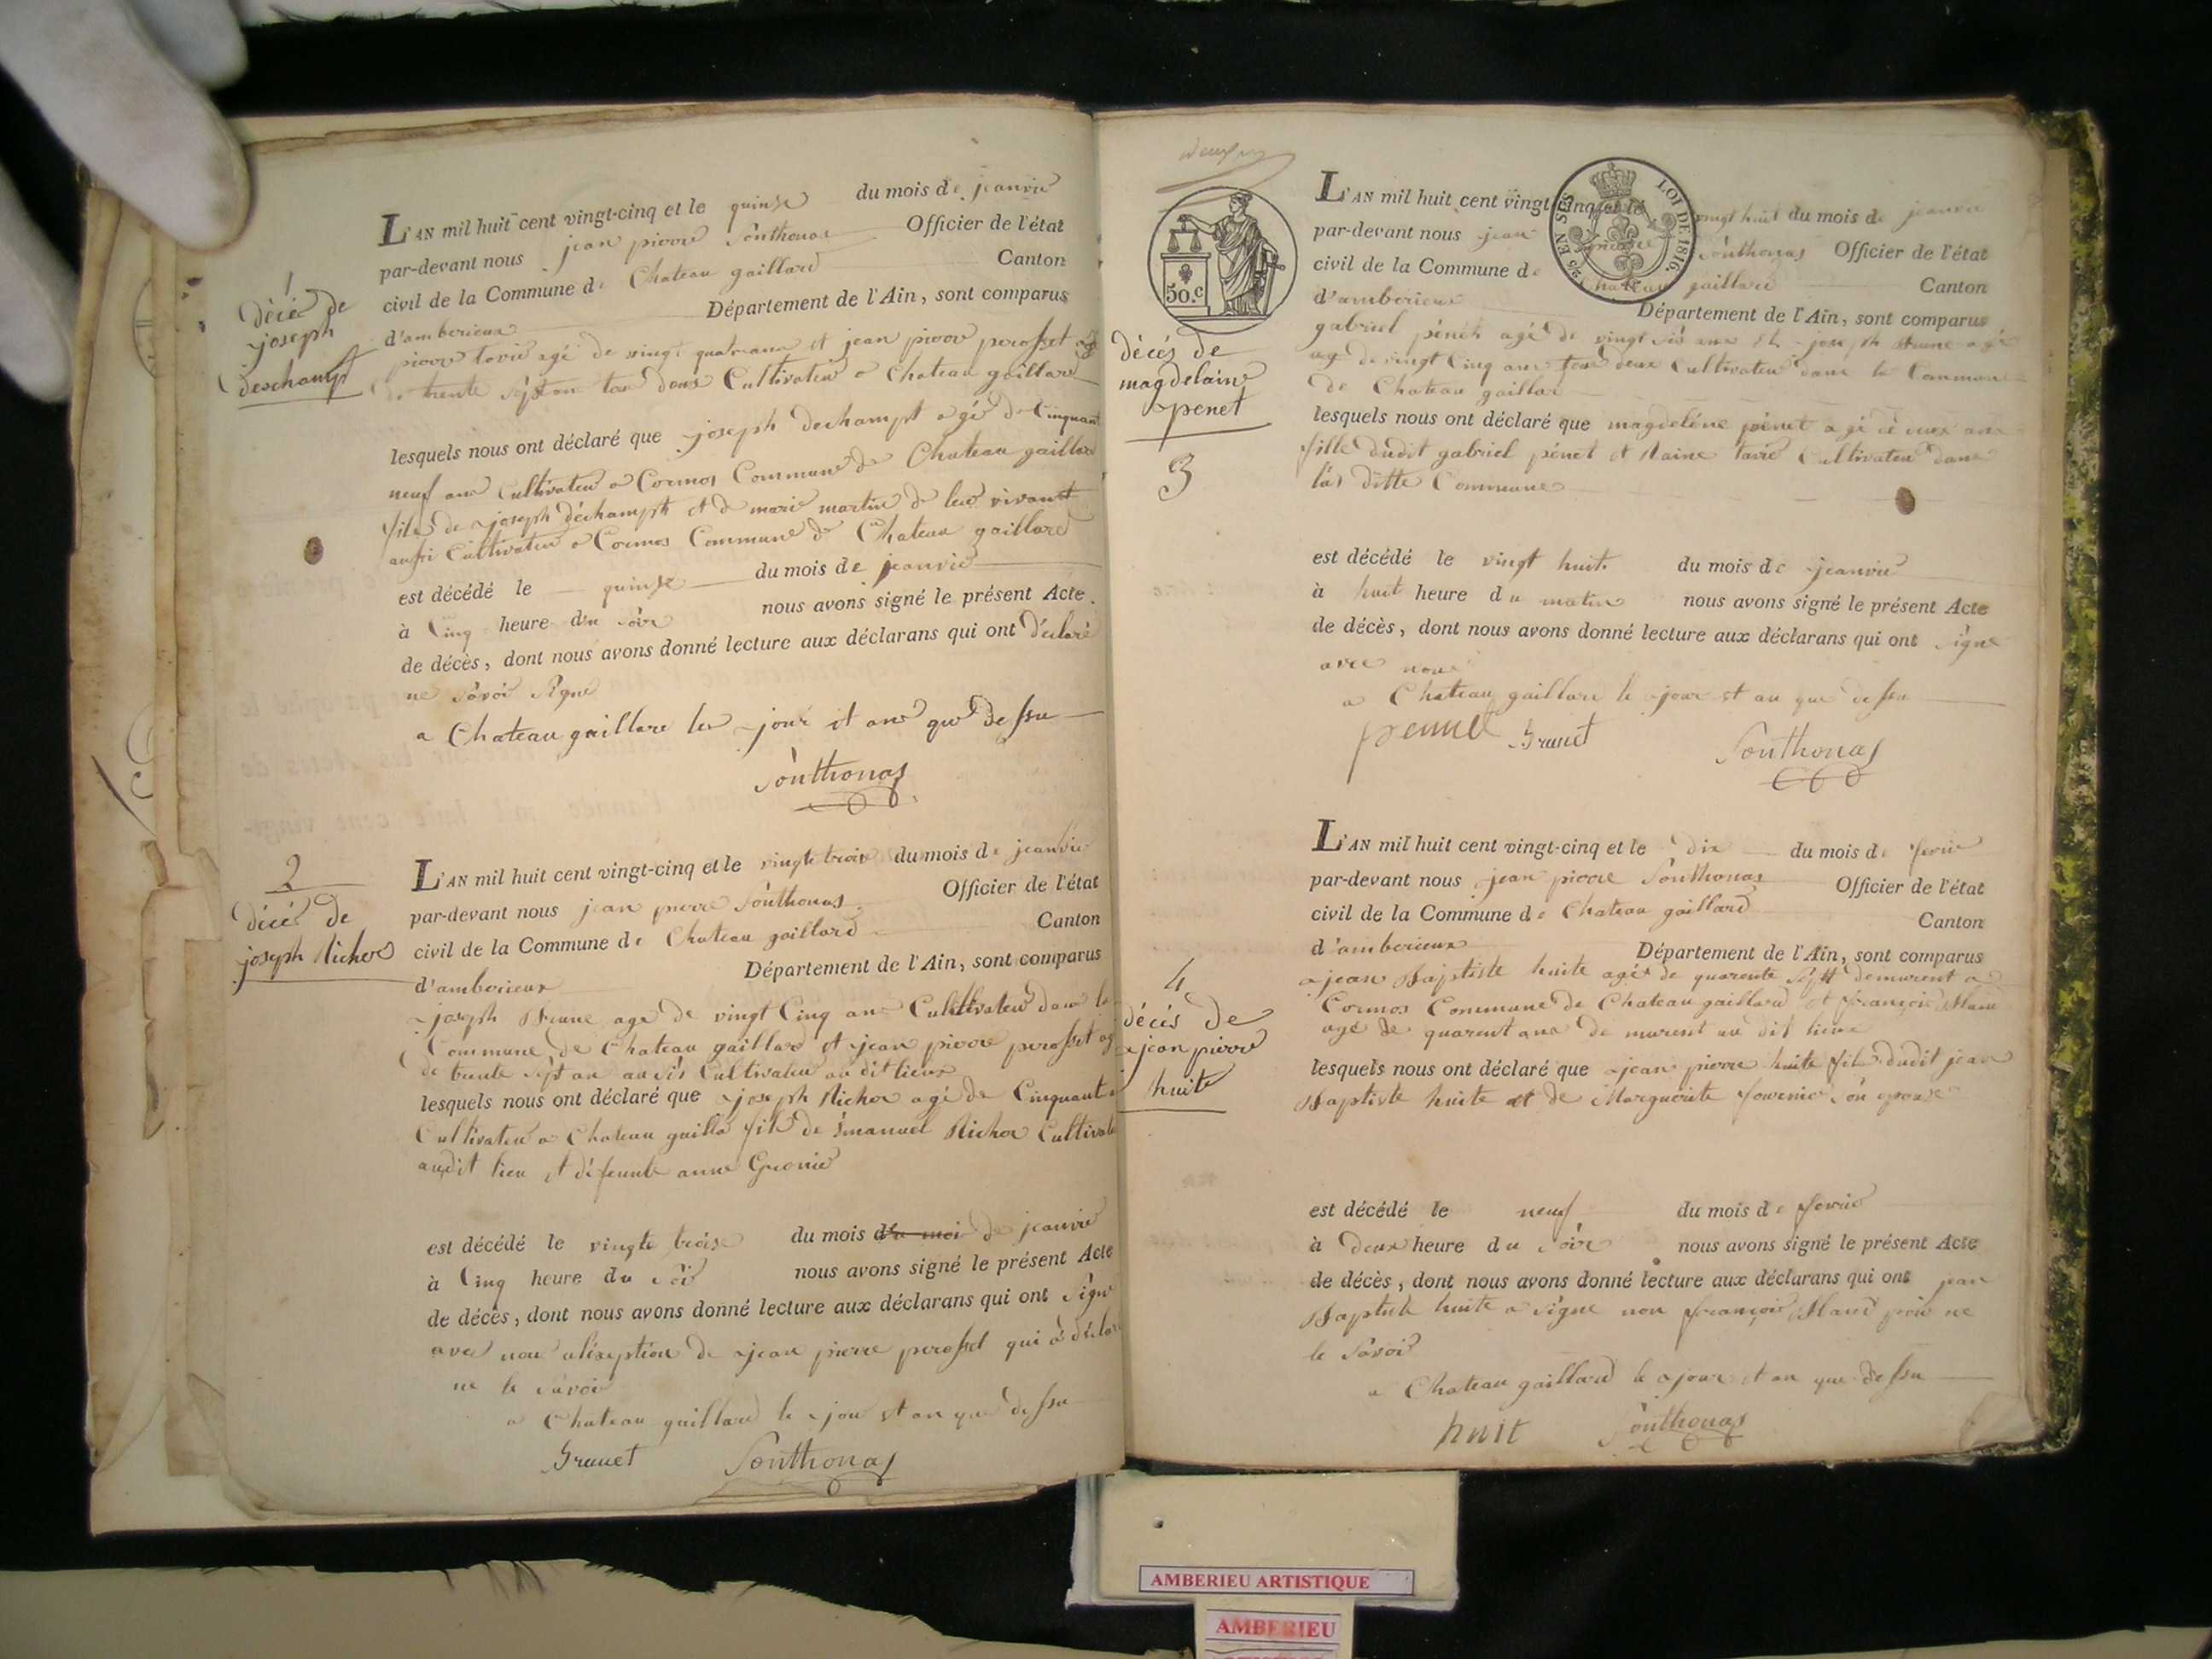 1
décés de
joseph
deschampt
L'AN mil huit cent vingt-cinq et le quinse du mois de jeanvié
par-devant nous jean pierre Sonthonas Officier de l'état
civil de la Commune de Chateau gaillard Canton
d'amberieux Département de l'Ain, sont comparus
pierre tavié agé de vingt quatre ans et jean pierre perosset agé
de trente sept an tou deux Cultivateur a Chateau gaillard
lesquels nous ont déclaré que joseph dechampt agé de Cinquant
neuf ans Cultivateur a Cormos Commune de Chateau gaillard
fils de joseph déchampt et de marie martin de leur vivant
aussi Cultivateur a Cormos Commune de Chateau gaillard
est décédé le quinse du mois de jeanvié
à Cinq heure du soir nous avons signé le présent Acte
de décès, dont nous avons donné lecture aux déclarans qui ont déclaré
ne savoir signé
a Chateau gaillard les jour et ans que dessu
Sonthonas
2
décés de
joseph Richer
L'AN mil huit cent vingt-cinq et le vingte trois du mois de jeanvié
par-devant nous jean pierre Sonthonas Officier de l'état
civil de la Commune de Chateau gaillard Canton
d'amberieux Département de l'Ain, sont comparus
joseph Brune age de vingt Cinq ans Cultivateur dans la
Commune de Chateau gaillard et jean pierre perosset ag
de trente sept an ausis Cultivateur au dit lieux
lesquels nous ont déclaré que joseph Richer agé de Cinquant
Cultivateur a Chateau gailla fils de Emanuel Richer Cultivate
audit lieu et défeunte anne
est décédé le vingte troise du mois du moi de jeanvié
à Cinq heure du soir nous avons signé le présent Acte
de décès, dont nous avons donné lecture aux déclarans qui ont signé
avec nou aléxeption de jean pierre perosset qui à déclaré
ne le savoir
a Chateau gaillard le jour et an que dessu
Brunet Sonthonas
50.c
2/5 EN SUS LOI DE 1816.
décés de
magdelaine
penet
3
L'AN mil huit cent vingt-cinq et le vingt huit du mois de jeanvié
par-devant nous jean pierre Sonthonas Officier de l'état
civil de la Commune de Chateau gaillard Canton
d'amberieux Département de l'Ain, sont comparus
gabriel pénet agé de vingt sis ans et joseph Brune agé
age de vingt Cinq ans tous deux Cultivateur dans la Commune
de Chateau gaillar
lesquels nous ont déclaré que magdeléne pénet agé de ans
fille dudit gabriel pénet et Raine tavié Cultivateur dans
las ditte Commune
est décédé le vingt huit du mois de jeanvié
à huit heure du matin nous avons signé le présent Acte
de décès, dont nous avons donné lecture aux déclarans qui ont signé
avec nous
a Chateau gaillard le jour et an que dessu
pennet Brunet Sonthonas
4
décés de
jean pierre
huite
L'AN mil huit cent vingt-cinq et le dix du mois de fevrié
par-devant nous jean pierre Sonthonas Officier de l'état
civil de la Commune de Chateau gaillard Canton
d'amberieux Département de l'Ain, sont comparus
jean Baptiste huite agé de quarente sept demurent a
Cormos Commune de Chateau gaillard et françois Bland
agé de quarent ans de murent au dit lieux
lesquels nous ont déclaré que jean pierre huite fils dudit jean
Baptiste huite et de Marguerite fournié son epouse
est décédé le neuf du mois de fevrié
à deux heure du soir nous avons signé le présent Acte
de décès, dont nous avons donné lecture aux déclarans qui ont jean
Baptiste huite a signé non françois Bland pour ne
le savoir
a Chateau gaillard le jour et an que dessu
huit Sonthonas
AMBERIEU ARTISTIQUE
AMBERIEU